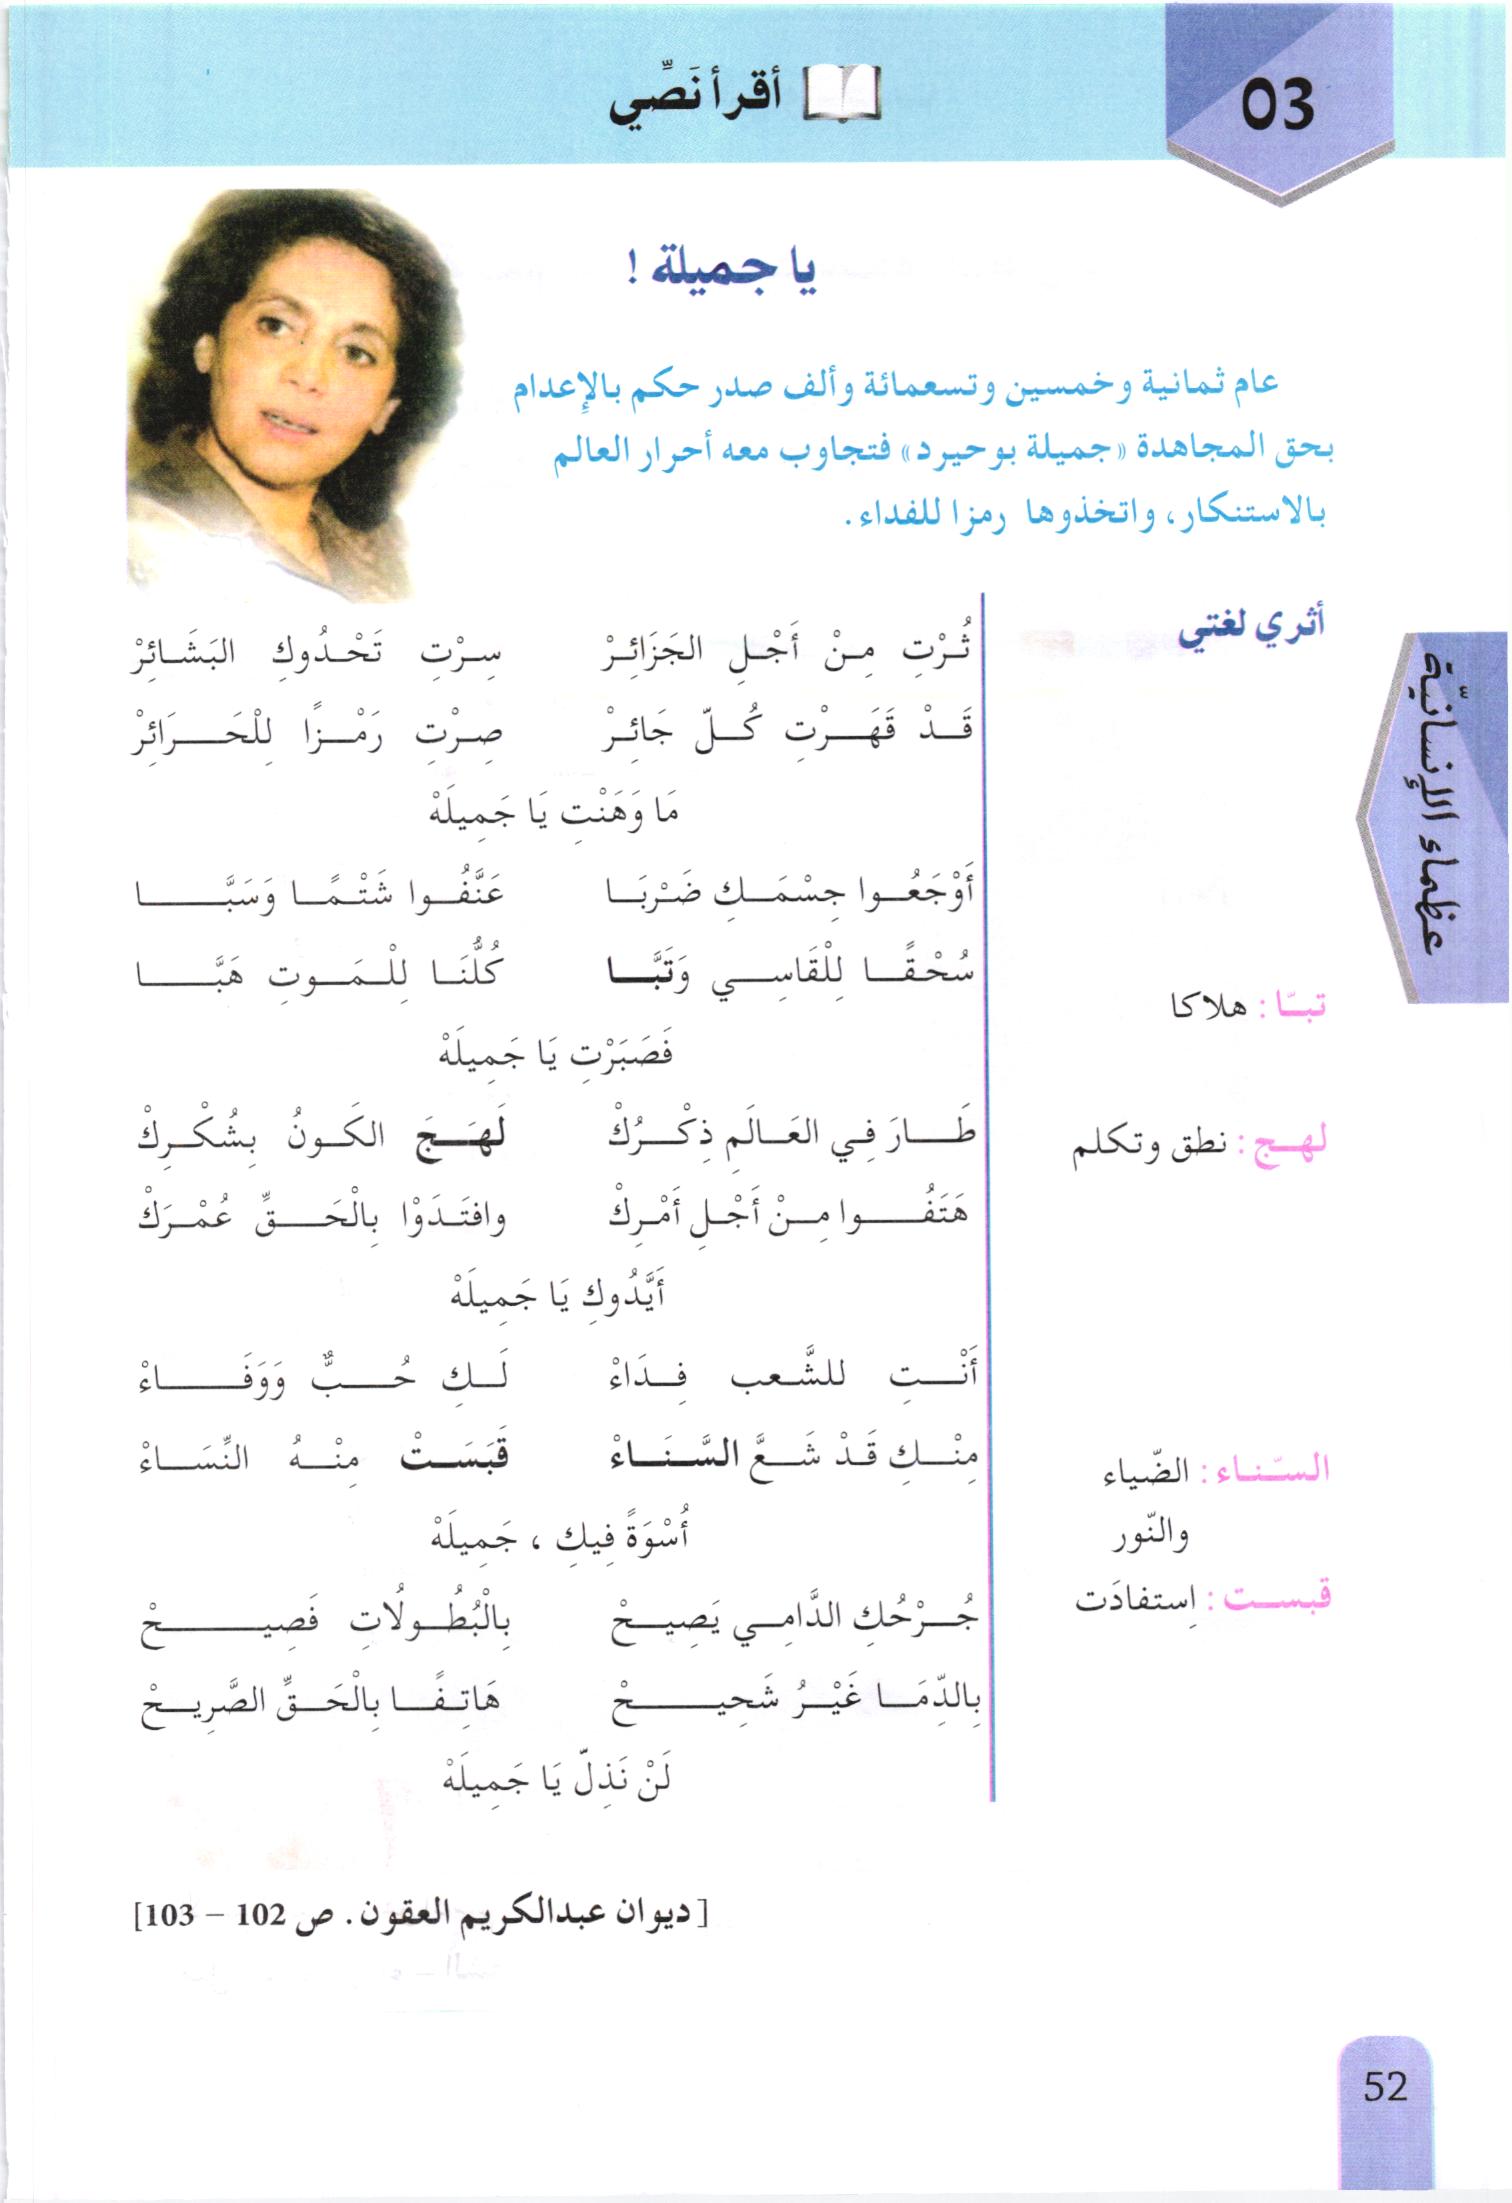 03
أقرأ نَصِّي
يا جميلة !
عام ثمانية وخمسين وتسعمائة وألف صدر حكم بالإعدام
بحق المجاهدة «جميلة بوحيرد» فتجاوب معه أحرار العالم
بالاستنكار، واتخذوها رمزا للفداء.
أثري لغتي
عظماء الإنسانيّة
ثُرْتِ مِنْ أَجْلِ الجَزَائِرْ سِرْتِ تَحْدُوكِ البَشَائِرْ
قَدْ قَهَرْتِ كُلّ جَائِرْ صِرْتِ رَمْزًا لِلْحَرَائِرْ
مَا وَهَنْتِ يَا جَمِيلَهْ
أَوْجَعُوا جِسْمَكِ ضَرْبَا عَنَّفُوا شَتْمًا وَسَبَّا
سُحْقًا لِلْقَاسِي وَتَبَّا كُلُّنَا لِلْمَوتِ هَبَّا
تبّا : هلاكا
فَصَبَرْتِ يَا جَمِيلَهْ
طَارَ فِي العَالَمِ ذِكْرُكْ لَهَجَ الكَونُ بِشُكْرِكْ
لهج : نطق وتكلم
هَتَفُوا مِنْ أَجْلِ أَمْرِكْ وافتَدَوْا بِالْحَقِّ عُمْرَكْ
أَيَّدُوكِ يَا جَمِيلَهْ
أَنْتِ للشَّعب فِدَاءْ لَكِ حُبٌّ وَوَفَاءْ
مِنْكِ قَدْ شَعَّ السَّنَاءْ قَبَسَتْ مِنْهُ النِّسَاءْ
السّناء : الضّياء
والنّور
أُسْوَةً فِيكِ ، جَمِيلَهْ
قبست : اِستفادَت
جُرْحُكِ الدَّامِي يَصِيحْ بِالْبُطُولَاتِ فَصِيحْ
بِالدِّمَا غَيْرُ شَحِيحْ هَاتِفًا بِالْحَقِّ الصَّرِيحْ
لَنْ نَذِلّ يَا جَمِيلَهْ
[ ديوان عبدالكريم العقون. ص 102 – 103]
52